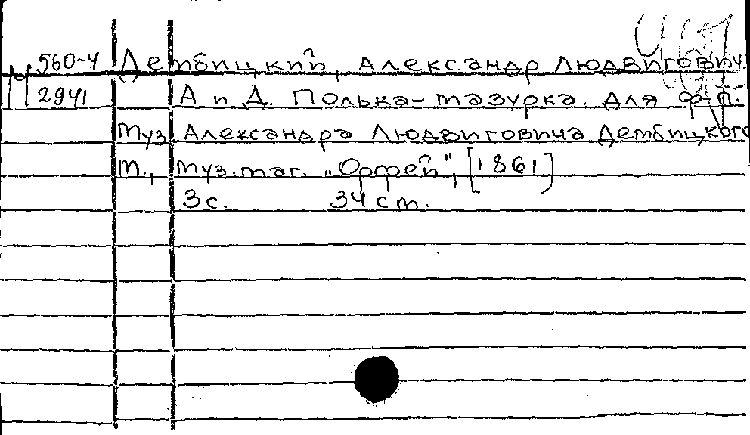 М 560-4 Дембицкий, Александр Людвигович.
2941 А и Д. Полька-мазурка. Для ф.-п.
Муз. Александра Людвиговича Дембицкого
М., Муз. маг. „Орфей", [1861]
3 с. 34 см.